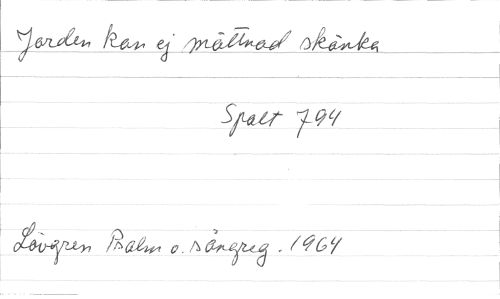 Jorden kan ej mättnad skänka
Spalt 794
Lövgren Psalm o. sångreg. 1964